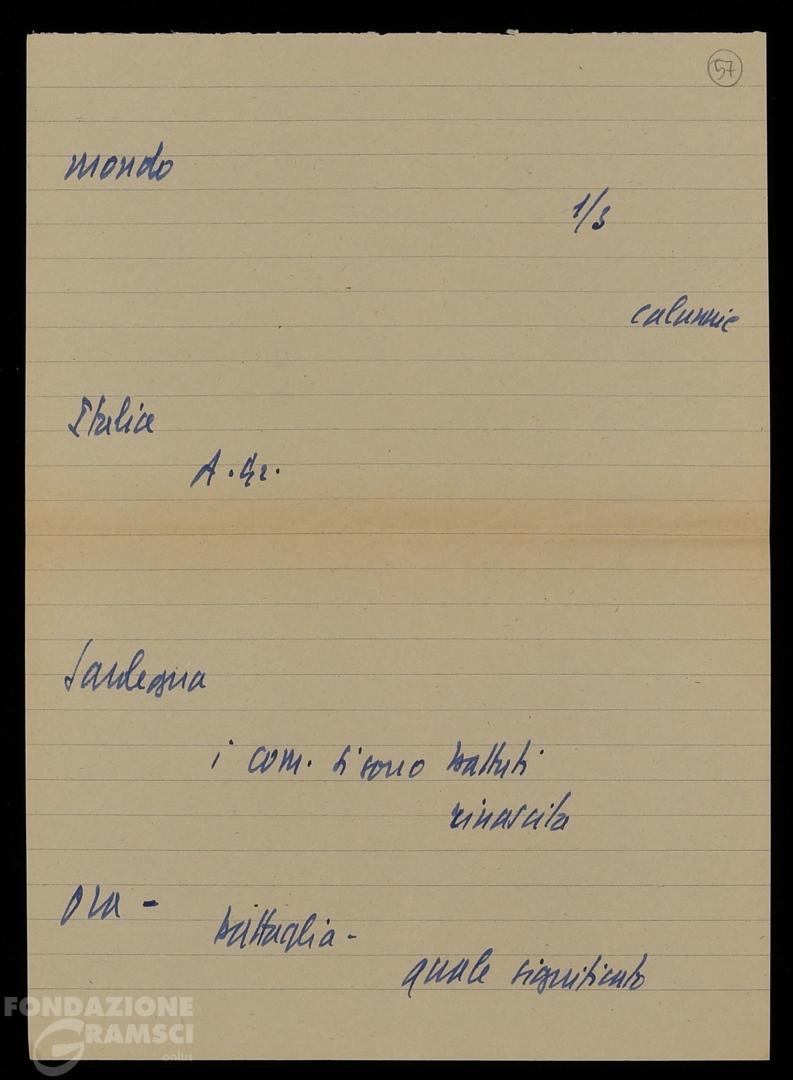 57
mondo
1/3
calunnie
Italia
A. Gr.
Sardegna
i com. si sono battuti
rinascita
Ora -
battaglia -
quale significato
FONDAZIONE
GRAMSCI
onlus